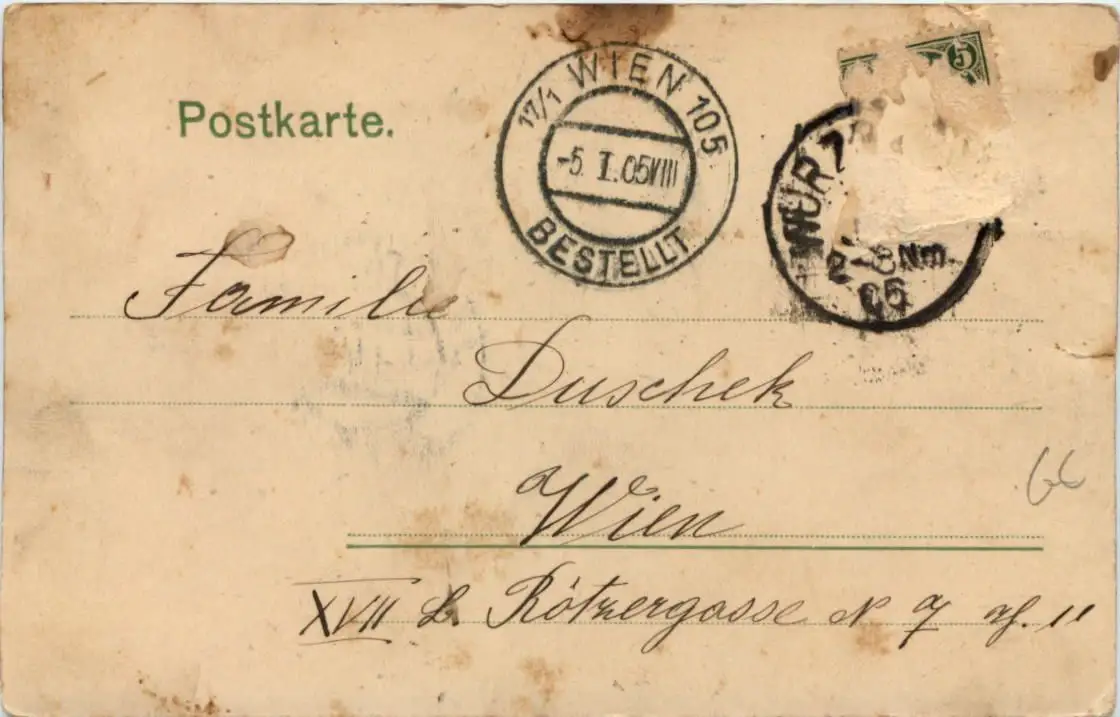 Postkarte.
17/1 WIEN 105
-5. I. 05 VIII
BESTELLT
5
WÜRZ
Nm.
05
Familie
Duschek
Wien
XVII B. Rötzergasse N 7